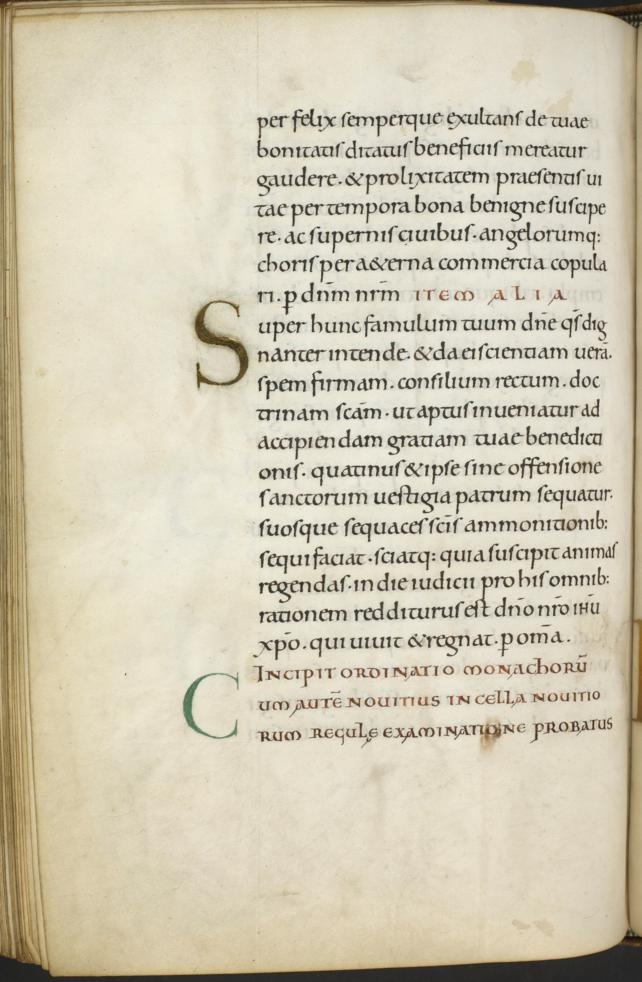 per felix semperque exultans de tuae
bonitatis ditatus beneficiis mereatur
gaudere. & prolixitatem praesentis ui
tae per tempora bona benigne suscipe
re. ac supernis ciuibus. angelorumq:
choris per a&erna commercia copula
ri. p̄ dn̄m nr̄m ITEM ALIA
Super hunc famulum tuum dn̄e qs̄ dig
nanter intende. & da ei scientiam uerā.
spem firmam. consilium rectum. doc
trinam sc̄am. ut aptus inueniatur ad
accipiendam gratiam tuae benedicti
onis. quatinus & ipse sine offensione
sanctorum uestigia patrum sequatur.
suosque sequaces sc̄is ammonitionib:
sequi faciat. sciatq: quia suscipit animas
regendas. in die iudicii pro his omnib:
rationem redditurus est dn̄o nr̄o ihū
xp̄o. qui uiuit & regnat. p̄ om̄a.
INCIPIT ORDINATIO MONACHORŪ
CUM AUTĒ NOUITIUS IN CELLA NOUITIO
RUM REGULĘ EXAMINATIONE PROBATUS